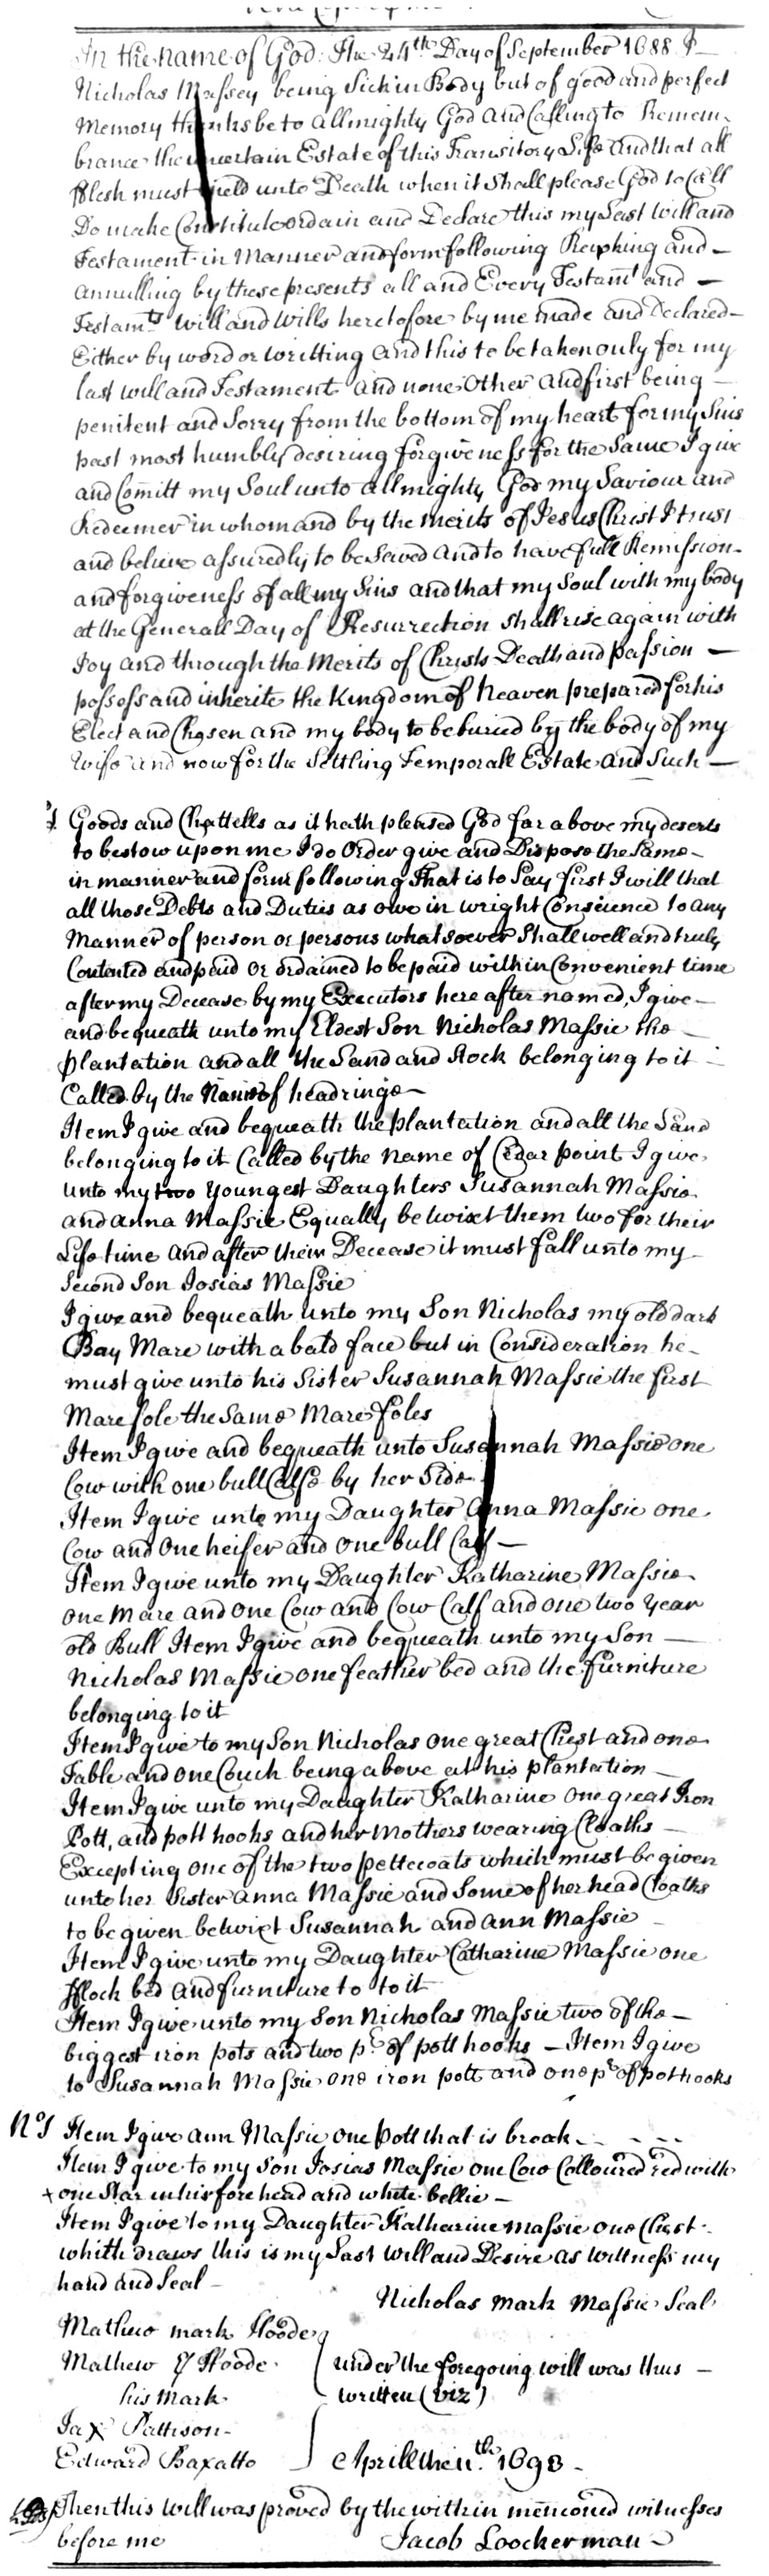 In the name of God: The 24th Day of September 1688 I
Nicholas Massey being Sick in Body but of good and perfect
Memory thanks be to allmighty God and Calling to Remem-
brance the uncertain Estate of this Transitory Life and that all
flesh must yield unto Death when it Shall please God to Call
Do make Constitute ordain and Declare this my Last Will and
Testament in Manner and form following Revoking and
annulling by these presents all and Every Testamt and
Testamts will and wills heretofore by me made and Declared
Either by word or writting and this to be taken only for my
last will and Testament and none Other and first being
penitent and Sorry from the bottom of my heart for my Sins
past most humbly desiring forgiveness for the Same I give
and Comitt my Soul unto allmighty God my Saviour and
Redeemer in whom and by the merits of Jesus Christ I trust
and believe assuredly to be Saved and to have full Remission
and forgiveness of all my Sins and that my Soul with my body
at the Generall Day of Resurrection shall rise again with
Joy and through the Merits of Christs Death and passion
possess and inherite the Kingdom of heaven prepared for his
Elect and Chosen and my body to be buried by the body of my
Wife and now for the Settling Temporall Estate and Such
Goods and Chattells as it hath pleased God far above my deserts
to bestow upon me I do Order give and Dispose the Same
in manner and form following That is to Say first I will that
all those Debts and Duties as owe in wright Conscience to any
Manner of person or persons whatsoever Shall well and truly
Contented and paid or ordained to be paid within Convenient time
after my Decease by my Executors here after named, I give
and bequeath unto my Eldest Son Nicholas Massie the
plantation and all the Land and Stock belonging to it
Called by the Name of headringe
Item I give and bequeath the plantation and all the Land
belonging to it Called by the name of Cedar point I give
unto my two Youngest Daughters Susannah Massie
and anna Massie Equally betwixt them two for their
Life time and after their Decease it must fall unto my
Second Son Josias Massie
I give and bequeath unto my Son Nicholas my old dark
Bay Mare with a bald face but in Consideration he
must give unto his Sister Susannah Massie the first
Mare fole the Same Mare foles
Item I give and bequeath unto Susannah Massie one
Cow with one bull Calfe by her Side
Item I give unto my Daughter Anna Massie one
Cow and One heifer and One bull Calf
Item I give unto my Daughter Katharine Massie
one Mare and One Cow and Cow Calf and one two Year
old Bull Item I give and bequeath unto my Son
Nicholas Massie one feather bed and the furniture
belonging to it
Item I give to my Son Nicholas one great Chest and one
Table and one Couch being above at his plantation
Item I give unto my Daughter Katharine one great Iron
Pott, and pott hooks and her Mothers wearing Cloaths
Excepting one of the two pettecoats which must be given
unto her Sister Anna Massie and Some of her head Cloaths
to be given betwixt Susannah and Ann Massie
Item I give unto my Daughter Catharine Massie one
fflock bed and furniture to to it
Item I give unto my Son Nicholas Massie two of the
biggest iron pots and two pr of pott hooks — Item I give
to Susannah Massie one iron pott and one pr of pothooks
Item I give ann Massie one Pott that is broak
Item I give to my Son Josias Massie one Cow Colloured red with
+ one Star in his forehead and white bellie
Item I give to my Daughter Katharine Massie one Chest
whith draws this is my Last will and Desire as wittness my
hand and Seal
Nicholas mark Massie Seal
Mathew mark Hoode
Mathew Hoode
his mark
under the foregoing will was thus
written (viz)
Jax Pattison
Edward Baxatto
Aprill the 11th 1698
Then this Will was proved by the within menconed witnesses
before me Jacob Loockerman